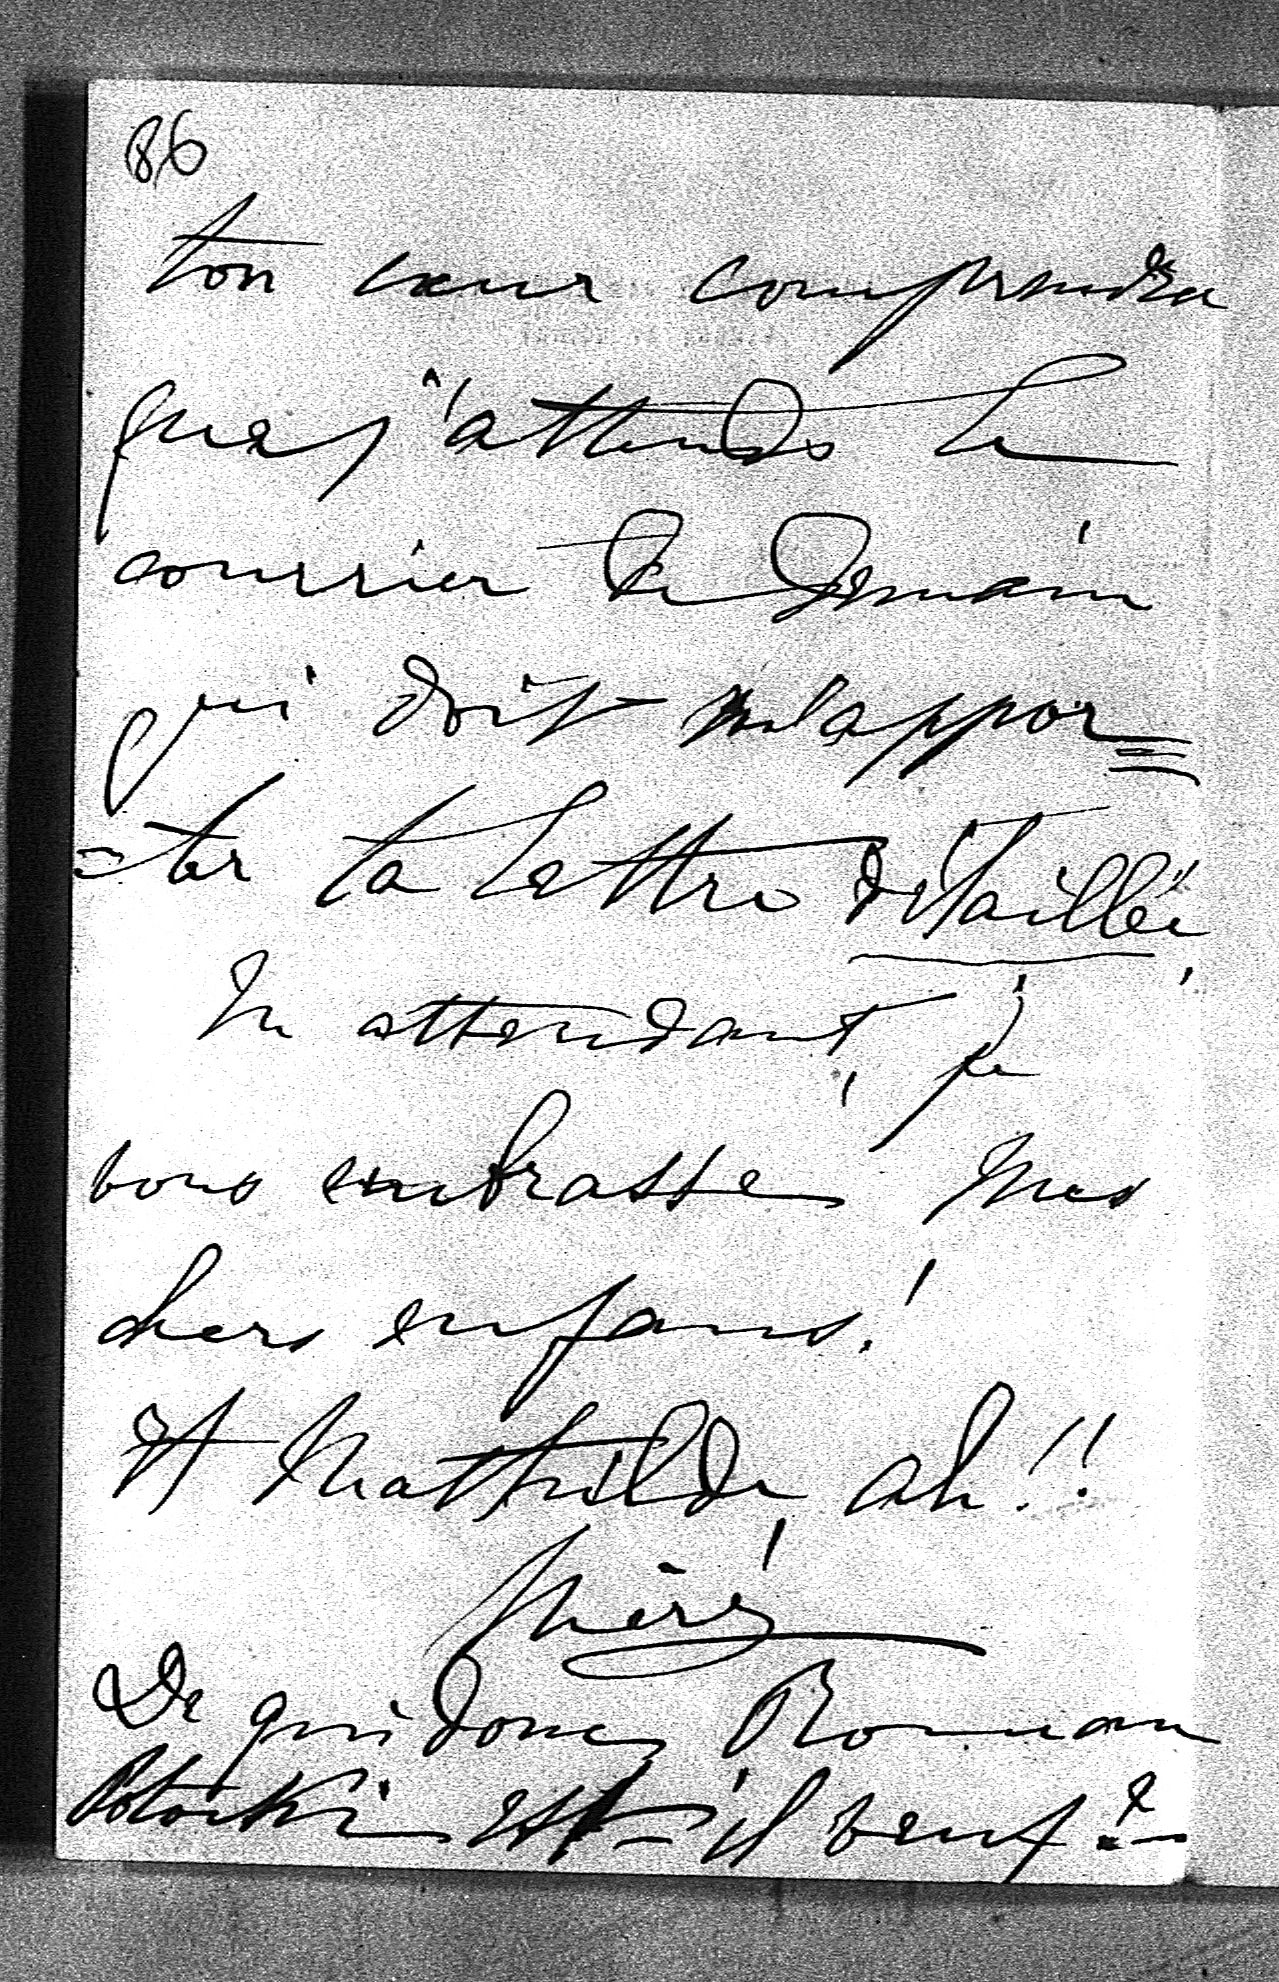 86
ton cœur comprendra
que j'attends le
courrier de demain
qui doit m'appor=
=ter ta lettre détaillée,
En attendant, je
vous embrasse mes
chers enfans!
Et Mathilde, ah!!
Mère
De qui donc Roman
Potocki est-il veuf?-